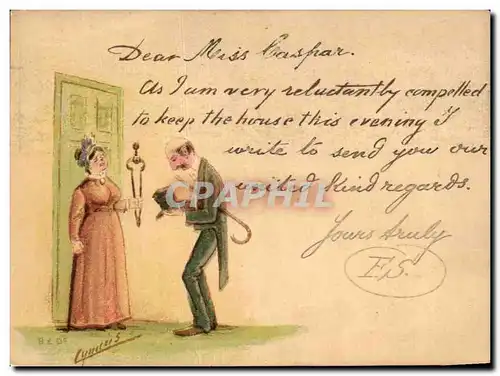 Dear Miss Caspar.
As I am very reluctantly compelled
to keep the house this evening I
write to send you our
united kind regards.
Yours truly
F.S.
CPHRIL
Cynicus